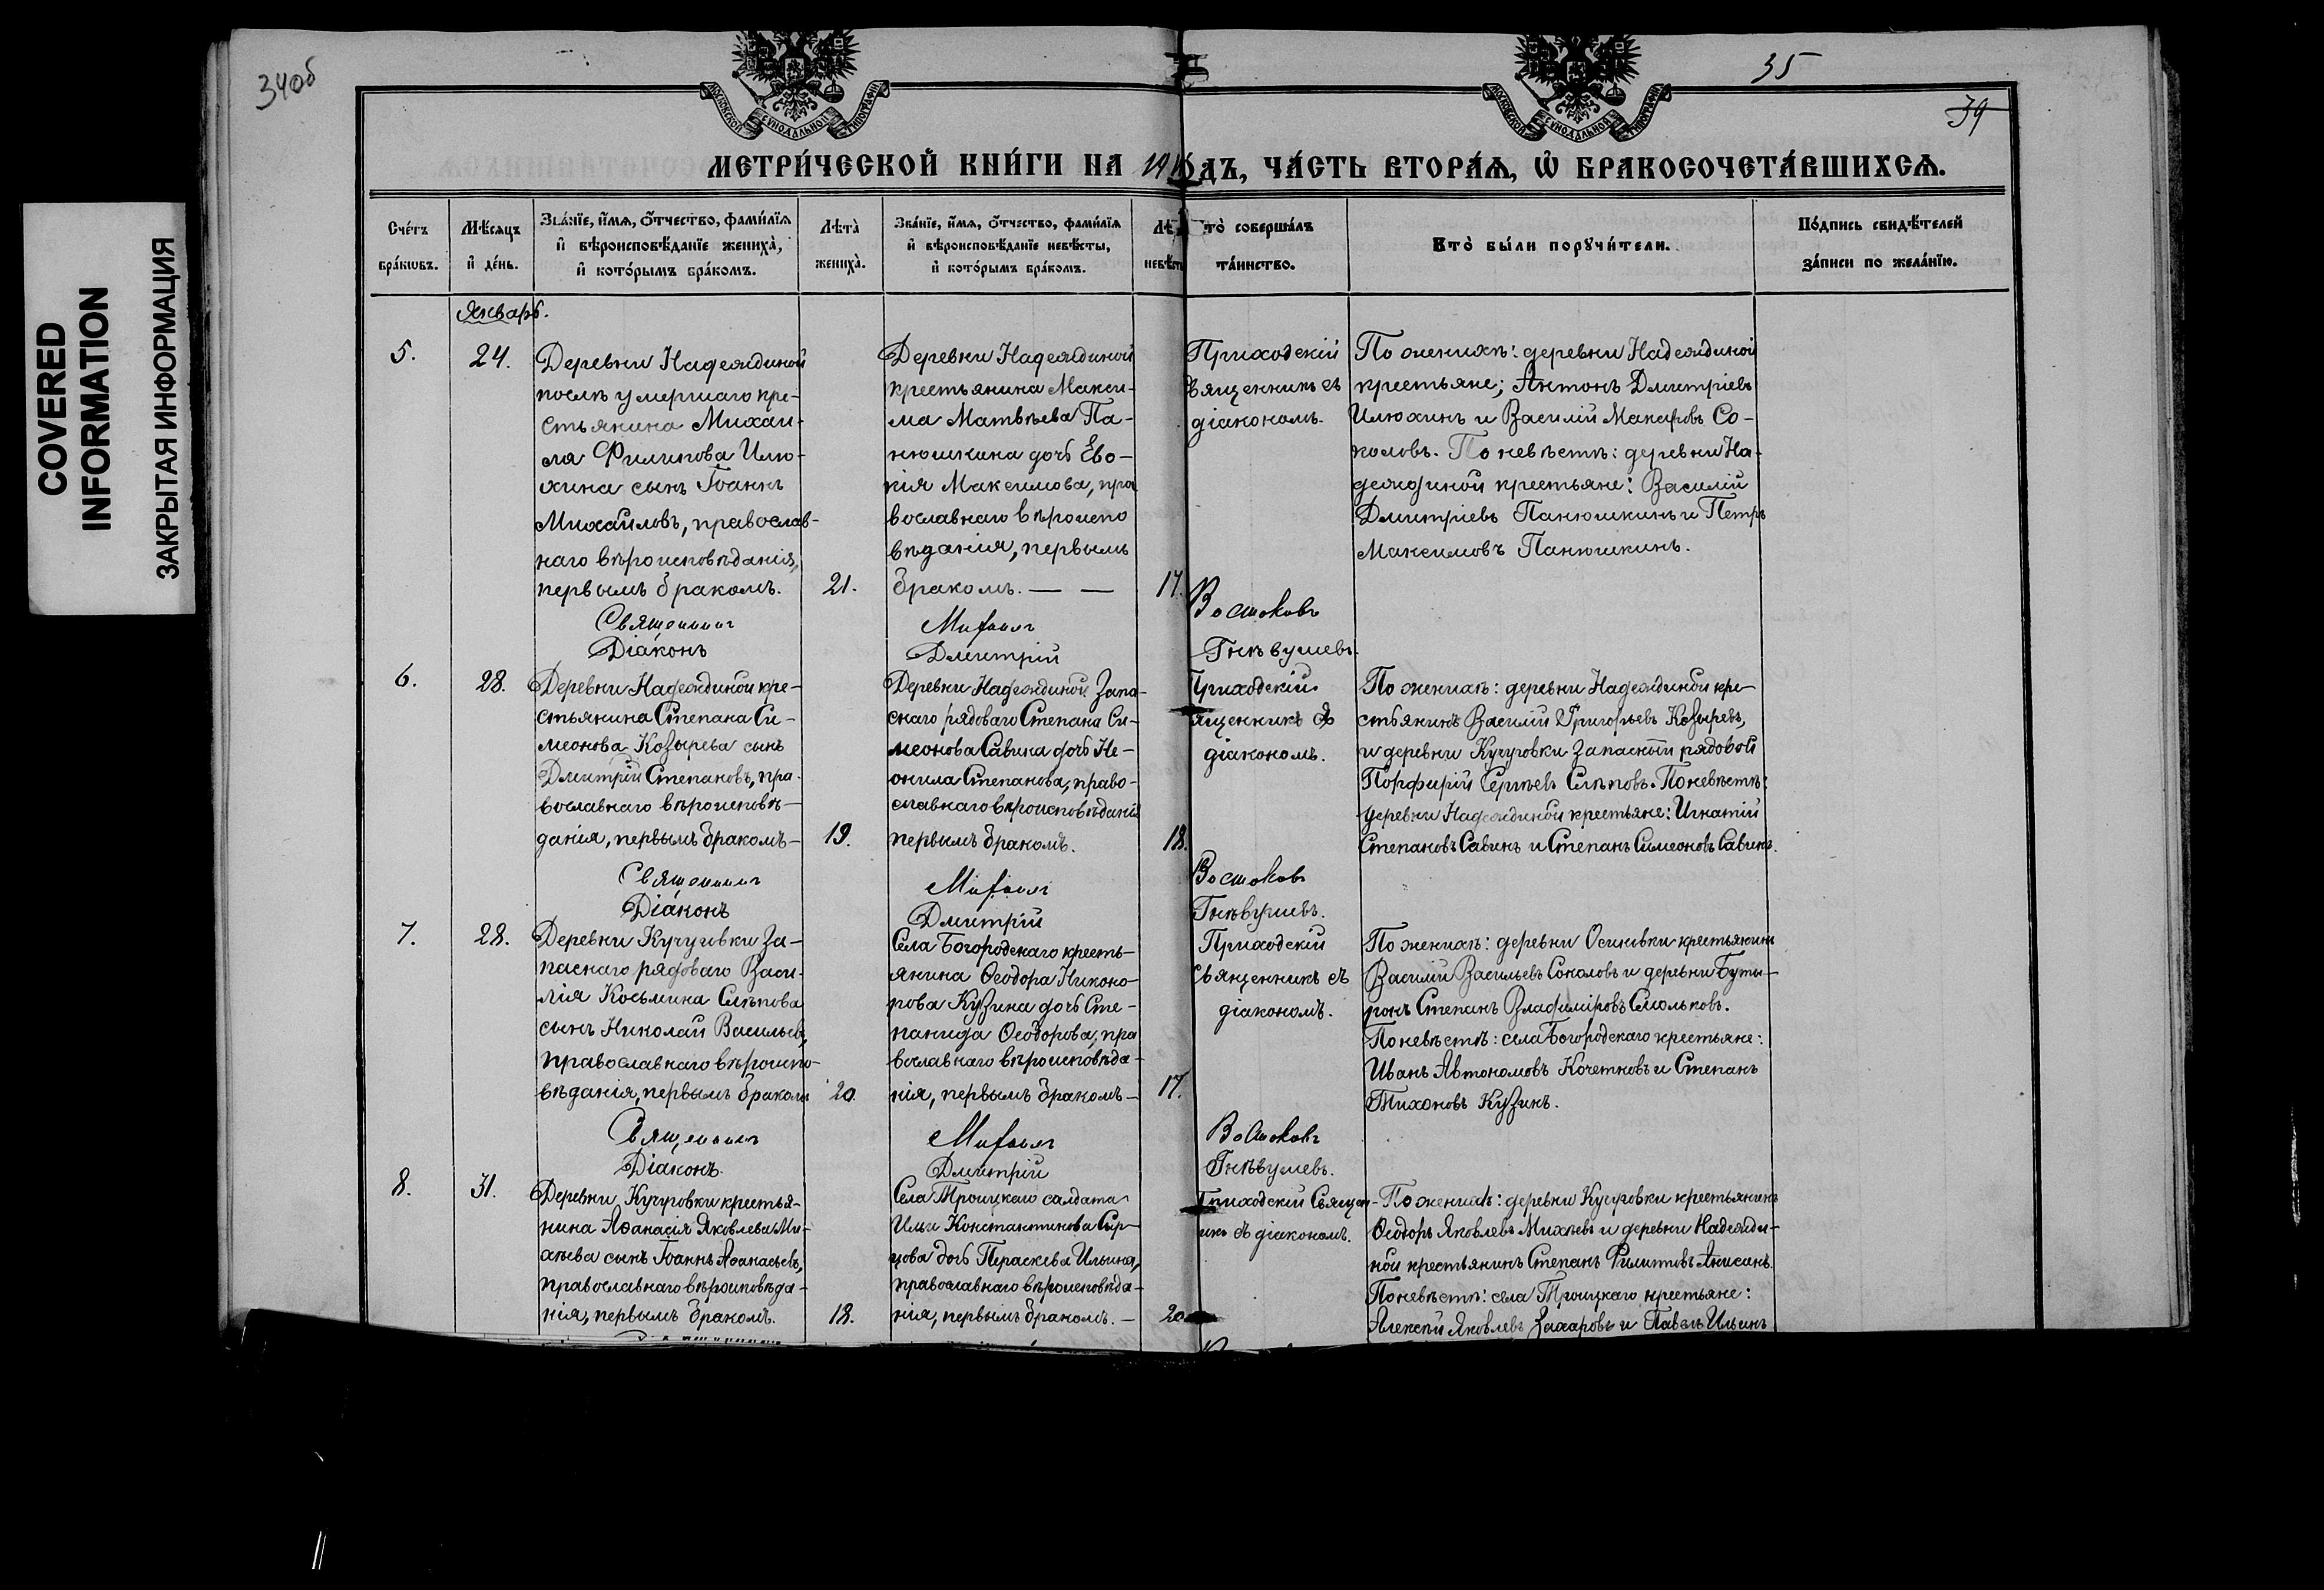 34об
35
39
COVERED
INFORMATION
ЗАКРЫТАЯ ИНФОРМАЦИЯ
МОСКОВСКОЙ СѴНОДАЛЬНОЙ ТИПОГРАФІИ
МОСКОВСКОЙ СѴНОДАЛЬНОЙ ТИПОГРАФІИ
МЕТРИ́ЧЕСКОЙ КНИ́ГИ НА 191 ОДЪ, ЧА́СТЬ ВТОРА́Ѧ, Ѡ҆ БРАКОСОЧЕТА́ВШИХСѦ.
Сче́тъ
бра́ковъ.
Мѣ́сяцъ
и҆ де́нь.
Зва́нїе, и҆́мѧ, ѻ҆́тчество, фами́лїѧ
и҆ вѣроисповѣ́данїе жениха̀,
и҆ кото́рымъ бра́комъ.
Лѣта̀
жениха̀.
Зва́нїе, и҆́мѧ, ѻ҆́тчество, фами́лїѧ
и҆ вѣроисповѣ́данїе невѣ́сты,
и҆ кото́рымъ бра́комъ.
Лѣ
невѣст
то̀ соверша́лъ
та́инство.
Кто̀ бы́ли порꙋчи́тели.
По́дпись свидѣ́телей
за́писи по жела́нїю.
Январь.
5.
24.
Деревни Надеждиной
послѣ умершаго кре-
стьянина Михаи-
ла Филипова Илю-
хина сынъ Іоаннъ
Михаиловъ, православ-
наго вѣроисповѣданія,
первымъ бракомъ.
21.
Деревни Надеждиной
крестьянина Макси-
ма Матвѣева Па-
нюшкина дочь Евдо-
кія Максимова, пра
вославнаго вѣроиспо
вѣданія, первымъ
бракомъ. — —
17.
Приходскій
Священникъ съ
діакономъ.
По женихѣ: деревни Надеждиной
крестьяне; Антонъ Дмитріевъ
Илюхинъ и Василій Макаровъ Со-
коловъ. По невѣстѣ: деревни На-
деждиной крестьяне: Василій
Дмитріевъ Панюшкинъ и Петръ
Максимовъ Панюшкинъ.
Священникъ
Михаилъ
Востоковъ
Діаконъ
Дмитрій
Гнѣвушевъ.
6.
28.
Деревни Надеждиной кре-
стьянина Степана Си-
меонова Козырева сынъ
Дмитрій Степановъ, пра-
вославнаго вѣроисповѣ-
данія, первымъ бракомъ-
19.
Деревни Надеждиной запа-
снаго рядоваго Степана Си-
меонова Савина дочь Не-
онила Степанова, право-
славнаго вѣроисповѣданія
первымъ бракомъ.
18.
Приходскій
ященникъ съ
діакономъ.
По женихѣ: деревни Надеждиной кре-
стьянинъ Василій Григорьевъ Козыревъ,
и деревни Кучуговки запасный рядовой
Порфирій Сергѣевъ Слѣповъ. По невѣстѣ:
деревни Надеждиной крестьяне: Игнатій
Степановъ Савинъ и Степанъ Симеоновъ Савинъ.
Священникъ
Михаилъ
Востоковъ
Діаконъ
Дмитрій
Гнѣвушевъ.
7.
28.
Деревни Кучуговки за-
паснаго рядоваго Васи-
лія Косьмина Слѣпова
сынъ Николай Васильевъ,
православнаго вѣроиспо-
вѣданія, первымъ бракомъ
20.
Села Богородскаго кресть-
янина Ѳеодора Никоно-
рова Кузина дочь Сте-
панида Ѳеодорова, пра
вославнаго вѣроисповѣда-
нія, первымъ бракомъ-
17.
Приходскій
Священникъ съ
діакономъ.
По женихѣ: деревни Осиновки крестьянинъ
Василій Васильевъ Соколовъ и деревни Буты-
рокъ Степанъ Владиміровъ Смольковъ.
По невѣстѣ: села Богородскаго крестьяне:
Иванъ Автономовъ Кочетковъ и Степанъ
Тихоновъ Кузинъ.
Священникъ
Михаилъ
Востоковъ
Діаконъ.
Дмитрій
Гнѣвушевъ.
8.
31.
Деревни Кучуговки крестья-
нина Аѳанасія Яковлева Ми-
хѣева сынъ Іоаннъ Аѳанасьевъ,
православнаго вѣроисповѣда-
нія, первымъ бракомъ.
18.
Села Троицкаго салдата
Ильи Константинова Сыр-
цова дочь Параскева Ильина,
православнаго вѣроисповѣда-
нія, первымъ бракомъ. —
20
Приходскій Священ-
икъ съ діакономъ.
По женихѣ: деревни Кучуговки крестьянинъ
Ѳеодоръ Яковлевъ Михѣевъ и деревни Надежди-
ной крестьянинъ Степанъ Филиповъ Анисинъ.
По невѣстѣ: села Троицкаго крестьяне:
Алексѣй Яковлевъ Захаровъ и Павелъ Ильинъ